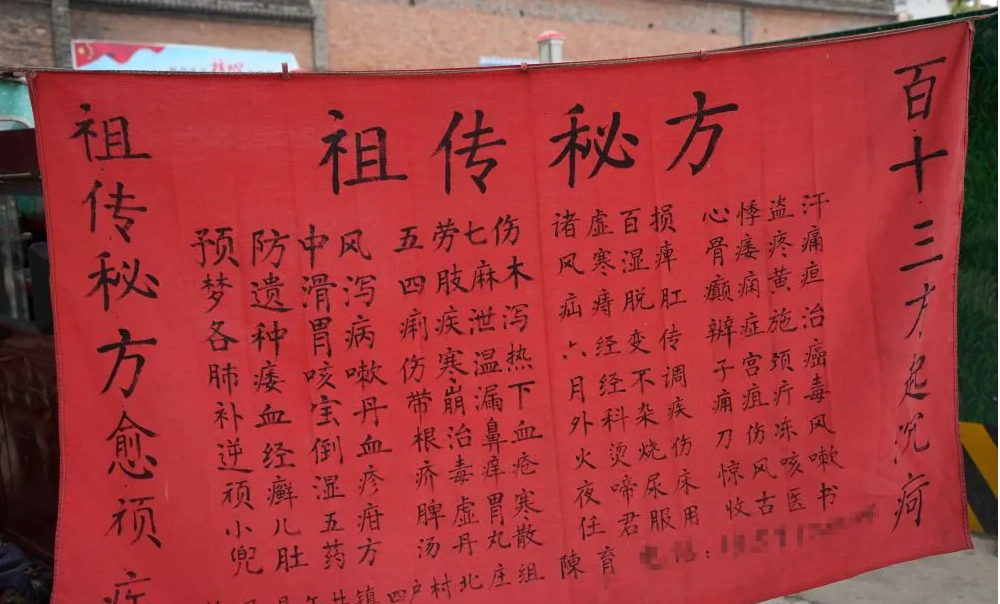 祖传秘方
百十三方起沉疴
祖传秘方愈顽
预防中风 五劳七伤 诸虚百损 心悸盗汗
梦遗滑泻 四肢麻木 风寒湿痹 骨痿疼痛
各种胃病 痢疾泄泻 疝痔脱肛 癫痫黄疸
肺痿咳嗽 伤寒温热 六经变传 辨症施治
补血宝丹 带崩漏下 月经不调 子宫颈癌
逆经倒血 根治鼻血 外科杂疾 痈疽疔毒
顽癣湿疹 疥毒痒疮 火烫烧伤 刀伤冻风
小儿五疳 脾虚胃寒 夜啼尿床 惊风咳嗽
兜肚药方 汤丹丸散 任君服用 收古医书
镇四户村北庄组 陳育